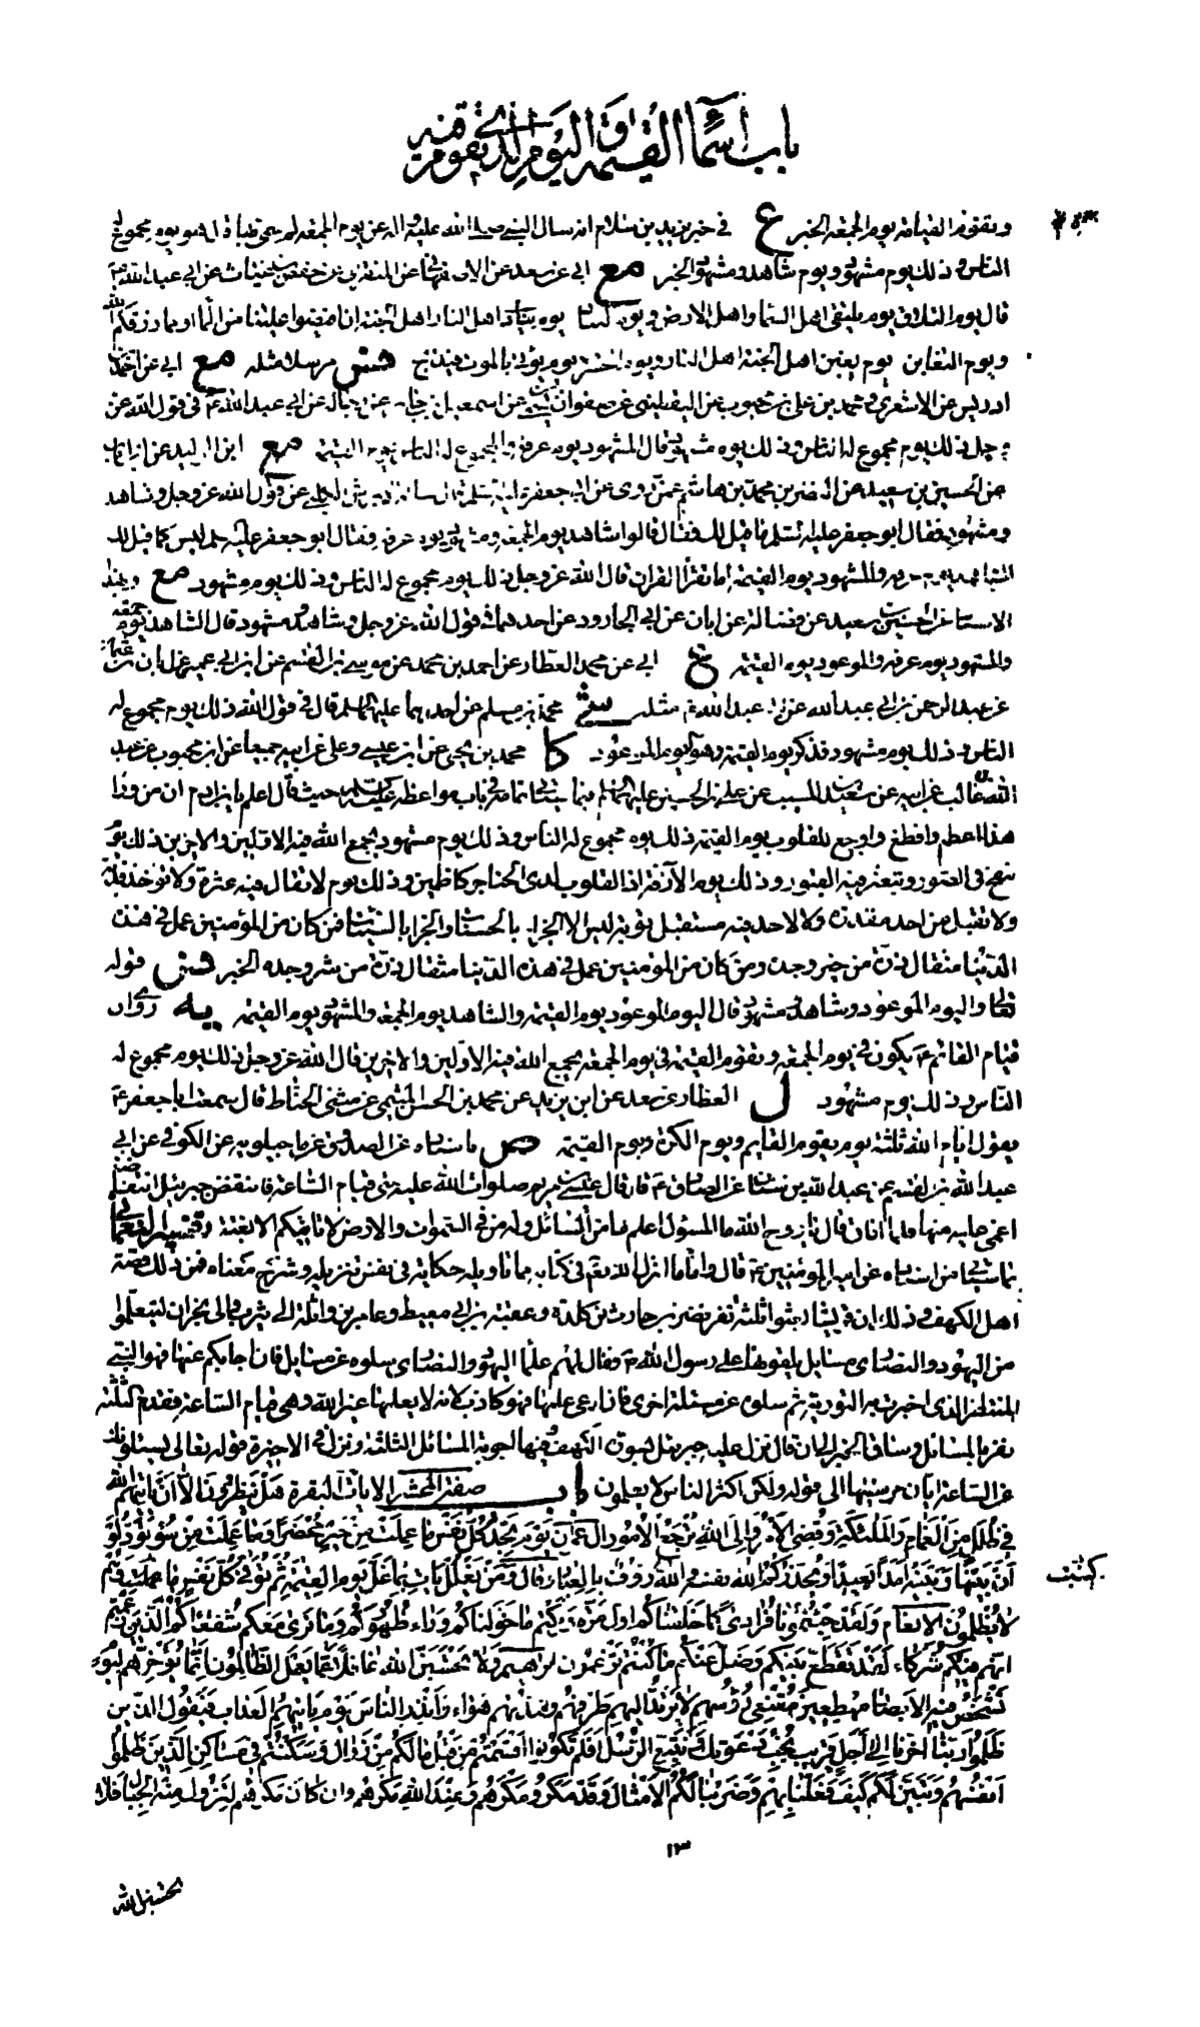 باب أسماء القيمة واليوم الذي تقوم فيه
وتقوم القيامة يوم الجمعة الخبر ع في خبر يزيد بن سلام انه سال النبي صلى الله عليه واله عن يوم الجمعة لم سمي بها قال هو يوم مجموع له
الناس وذلك يوم مشهود ويوم شاهد ومشهود الخبر مع ابي عن سعد عن الاصفهاني عن المنقري عن حفص بن غياث عن ابي عبد الله ع
قال يوم التلاق يوم يلتقي اهل السماء واهل الارض ويوم التناد يوم ينادي اهل النار اهل الجنة ان افيضوا علينا من الماء او مما رزقكم الله
ويوم التغابن يوم يغبن اهل الجنة اهل النار ويوم الحسرة يوم يؤتى بالموت فيذبح فس مرسلا مثله مع ابي عن احمد بن
ادريس عن الاشعري عن محمد بن علي بن محبوب عن اليقطيني عن صفوان عن اسمعيل بن جابر عن رجاله عن ابي عبد الله ع في قول الله عز
وجل ذلك يوم مجموع له الناس وذلك يوم مشهود قال المشهود يوم عرفة والمجموع له الناس يوم القيمة مع ابن الوليد عن ابن ابان
عن الحسين بن سعيد عن النضر بن محمد بن هاشم عمن روى عن ابي جعفر قال ساله الابرش الكلبي عن قول الله عز وجل وشاهد
ومشهود فقال ابو جعفر عليه السلم ما قيل لك فقال قالوا شاهد يوم الجمعة ومشهود يوم عرفة فقال ابو جعفر عليه السلم ليس كما قيل لك
الشاهد يوم عرفة والمشهود يوم القيمة اما تقرأ القران قال الله عز وجل ذلك يوم مجموع له الناس وذلك يوم مشهود مع وبهذا
الاسناد عن الحسين بن سعيد عن فضالة عن ابان عن ابي الجارود عن احدهما في قول الله عز وجل وشاهد ومشهود قال الشاهد يوم الجمعة
والمشهود يوم عرفة والموعود يوم القيمة مع ابي عن محمد العطار عن احمد بن محمد عن موسى بن القسم عن ابن ابي عمير عن ابان بن عثمان
عن عبد الرحمن بن ابي عبد الله عن ابي عبد الله ع مثله شي محمد بن مسلم عن احدهما عليهما السلم قال في قول الله ذلك يوم مجموع له
الناس وذلك يوم مشهود فذكر يوم القيمة وهو اليوم الموعود كا محمد بن يحيى عن ابن عيسى وعلي عن ابيه جميعا عن ابن محبوب عن عبد
الله بن غالب عن ابيه عن سعيد بن المسيب عن علي بن الحسين عليهما السلم فيما ياتي تمامه في باب مواعظه عليه السلم حيث قال اعلم يا بن ادم ان من وراء
هذا اعظم وافظع واوجع للقلوب يوم القيمة ذلك يوم مجموع له الناس وذلك يوم مشهود يجمع الله فيه الاولين والاخرين ذلك يوم
ينفخ في الصور وتبعثر فيه القبور وذلك يوم الآزفة اذ القلوب لدى الحناجر كاظمين وذلك يوم لا تقال فيه عثرة ولا تؤخذ فدية
ولا تقبل من احد معذرة ولا لاحد فيه مستقبل توبة ليس الا الجزاء بالحسنات والجزاء بالسيئات فمن كان من المؤمنين عمل في هذه
الدنيا مثقال ذرة من خير وجده ومن كان من المؤمنين عمل في هذه الدنيا مثقال ذرة من شر وجده الخبر فس قوله
تعالى واليوم الموعود وشاهد ومشهود قال اليوم الموعود يوم القيمة والشاهد يوم الجمعة والمشهود يوم القيمة يه روي ان
قيام القائم ع يكون في يوم الجمعة وتقوم القيمة في يوم الجمعة يجمع الله فيه الاولين والاخرين قال الله عز وجل ذلك يوم مجموع له
الناس وذلك يوم مشهود ل العطار عن سعد عن ابن يزيد عن محمد بن الحسن الميثمي عن مثنى الحناط قال سمعت ابا جعفر ع
يقول ايام الله ثلثة يوم يقوم القايم ويوم الكرة ويوم القيمة ص باسناده عن الصدوق عن ماجيلويه عن الكوفي عن ابي
عبد الله عن عبد الله بن سنان عن الصادق ع قال قال عيسى بن مريم صلوات الله عليه متى قيام الساعة فانتفض جبرئيل انتفاضة
اغمي عليه منها فلما افاق قال يا روح الله ما المسؤل اعلم بها من السائل وله من في السموات والارض لا تاتيكم الا بغتة وتفسير النعماني
بما سياتي من اسناده عن امير المؤمنين ع قال واما ما انزل الله تع في كتابه مما تاويله حكاية في نفس تنزيله وشرح معناه فمن ذلك قصة
اهل الكهف وذلك ان قريشا بعثوا ثلثة نفر نضر بن حارث بن كلدة وعقبة بن ابي معيط وعامر بن واثلة الى يثرب والى نجران ليتعلموا
من اليهود والنصارى مسايل يلقونها على رسول الله ص فقال لهم علماء اليهود والنصارى سلوه عن مسايل فان اجابكم عنها فهو النبي
المنتظر الذي اخبرت به التورية ثم سلوه عن مسئلة اخرى فان ادعى علمها فهو كاذب لانه لا يعلمها غير الله وهي قيام الساعة فقدم الثلثة
نفر بالمسائل وساق الخبر الى ان قال نزل عليه جبرئيل بسورة الكهف وفيها اجوبة المسائل الثلثة ونزل في الاخيرة قوله تعالى يسئلونك
عن الساعة ايان مرسيها الى قوله ولكن اكثر الناس لا يعلمون باب صفة المحشر الايات البقرة هَلْ يَنْظُرُونَ إِلَّا أَنْ يَأْتِيَهُمُ اللهُ
فِي ظُلَلٍ مِنَ الْغَمَامِ وَالْمَلٰئِكَةُ وَقُضِيَ الْأَمْرُ وَإِلَى اللهِ تُرْجَعُ الْأُمُورُ ال عمران يَوْمَ تَجِدُ كُلُّ نَفْسٍ مَا عَمِلَتْ مِنْ خَيْرٍ مُحْضَرًا وَمَا عَمِلَتْ مِنْ سُوءٍ تَوَدُّ لَوْ
أَنَّ بَيْنَهَا وَبَيْنَهُ أَمَدًا بَعِيدًا وَيُحَذِّرُكُمُ اللهُ نَفْسَهُ وَاللهُ رَؤُفٌ بِالْعِبَادِ وقال وَمَنْ يَغْلُلْ يَأْتِ بِمَا غَلَّ يَوْمَ الْقِيٰمَةِ ثُمَّ تُوَفَّى كُلُّ نَفْسٍ مَا كَسَبَتْ وَهُمْ
لَا يُظْلَمُونَ الانعام وَلَقَدْ جِئْتُمُونَا فُرَادَى كَمَا خَلَقْنَاكُمْ أَوَّلَ مَرَّةٍ وَتَرَكْتُمْ مَا خَوَّلْنَاكُمْ وَرَاءَ ظُهُورِكُمْ وَمَا نَرَى مَعَكُمْ شُفَعَاءَكُمُ الَّذِينَ زَعَمْتُمْ
أَنَّهُمْ فِيكُمْ شُرَكَاءُ لَقَدْ تَقَطَّعَ بَيْنَكُمْ وَضَلَّ عَنْكُمْ مَا كُنْتُمْ تَزْعُمُونَ ابراهيم وَلَا تَحْسَبَنَّ اللهَ غَافِلًا عَمَّا يَعْمَلُ الظَّالِمُونَ إِنَّمَا يُؤَخِّرُهُمْ لِيَوْمٍ
تَشْخَصُ فِيهِ الْأَبْصَارُ مُهْطِعِينَ مُقْنِعِي رُؤُسِهِمْ لَا يَرْتَدُّ إِلَيْهِمْ طَرْفُهُمْ وَأَفْئِدَتُهُمْ هَوَاءٌ وَأَنْذِرِ النَّاسَ يَوْمَ يَأْتِيهِمُ الْعَذَابُ فَيَقُولُ الَّذِينَ
ظَلَمُوا رَبَّنَا أَخِّرْنَا إِلَى أَجَلٍ قَرِيبٍ نُجِبْ دَعْوَتَكَ وَنَتَّبِعِ الرُّسُلَ أَوَلَمْ تَكُونُوا أَقْسَمْتُمْ مِنْ قَبْلُ مَا لَكُمْ مِنْ زَوَالٍ وَسَكَنْتُمْ فِي مَسَاكِنِ الَّذِينَ ظَلَمُوا
أَنْفُسَهُمْ وَتَبَيَّنَ لَكُمْ كَيْفَ فَعَلْنَا بِهِمْ وَضَرَبْنَا لَكُمُ الْأَمْثَالَ وَقَدْ مَكَرُوا مَكْرَهُمْ وَعِنْدَ اللهِ مَكْرُهُمْ وَإِنْ كَانَ مَكْرُهُمْ لِتَزُولَ مِنْهُ الْجِبَالُ فَلَا
١٣
تحسبن الله